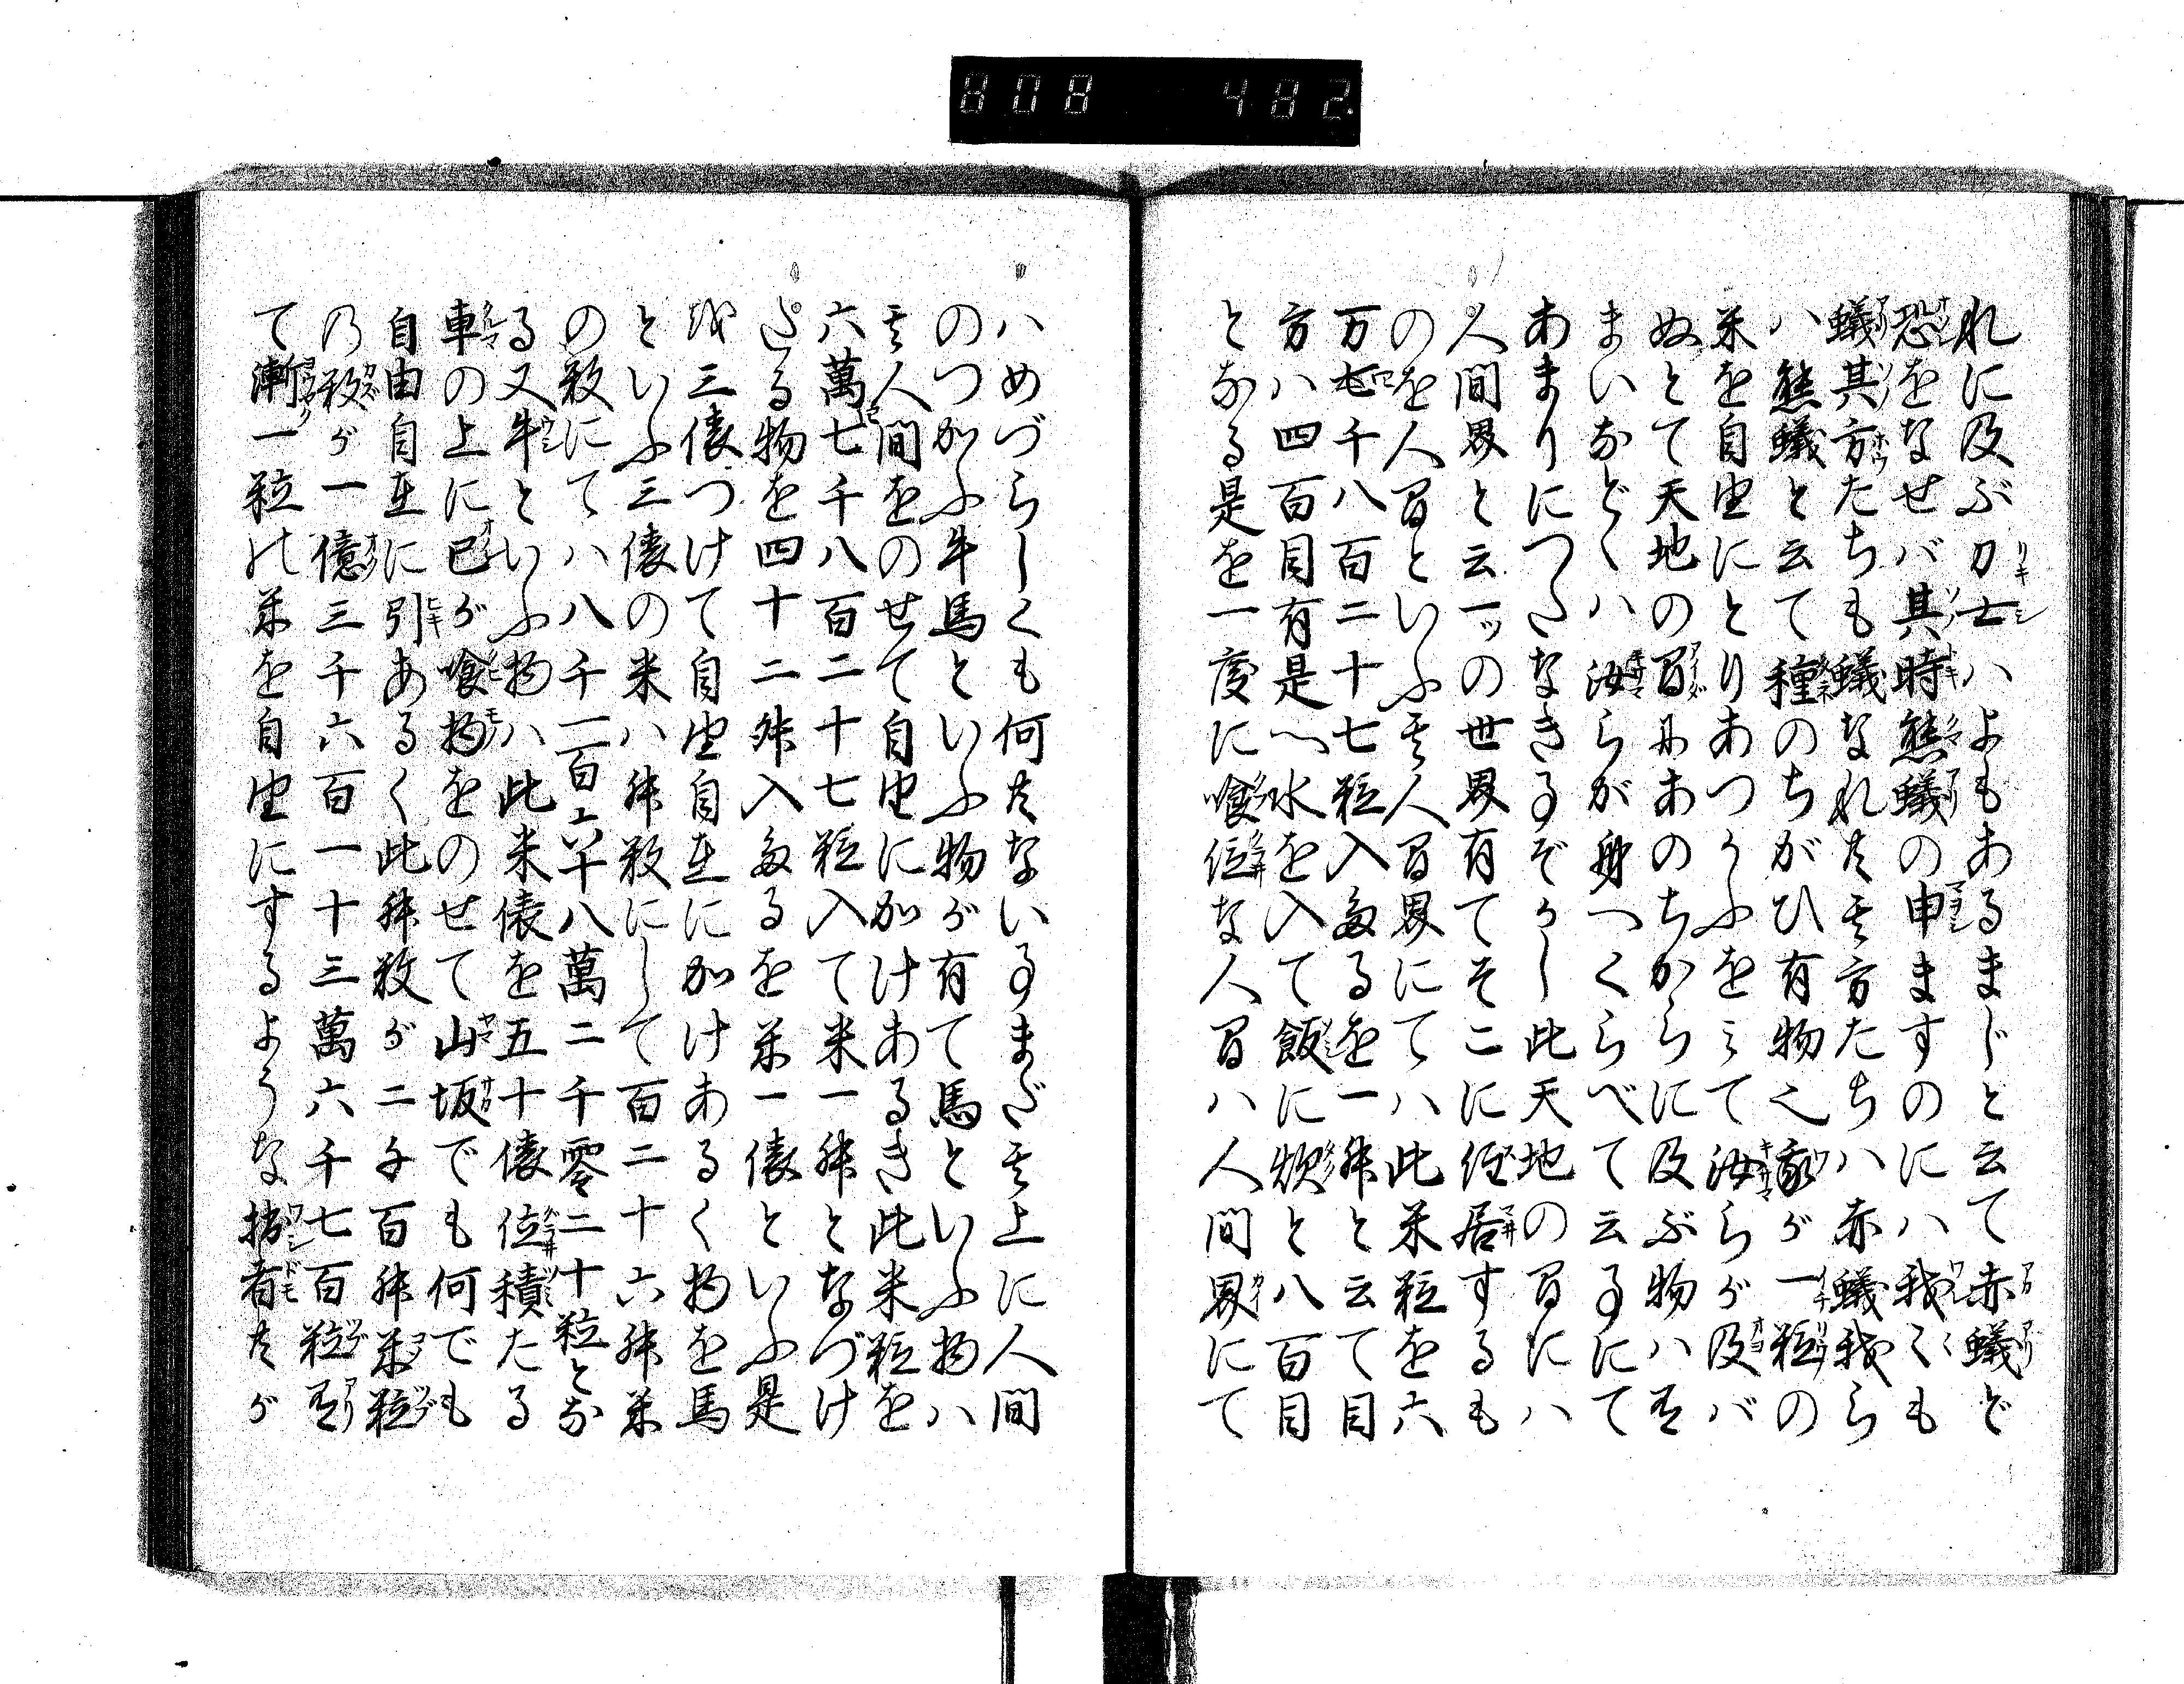 808 482
れに及ぶ力士ハよもあるまじと云て赤蟻ど
恐をなせバ其時熊蟻の申ますのにハ我〻も
蟻其方たちも蟻なれ共其方たちハ赤蟻我ら
ハ熊蟻と云て種のちがひ有物也家が一粒の
米を自由にとりあつかふをミて汝らが及バ
ぬとて天地の間にあのちからに及ぶ物ハ有
まいなどくハ汝らが身つくらべて云事にて
あまりにつたなき事ぞかし此天地の間にハ
人間界と云一ッの世界有てそこに住居するも
のを人間といふ其人間界にてハ此米粒を六
万七千八百二十七粒入たるを一舛と云て目
方ハ四百目有是へ水を入て飯に炊と八百目
となる是を一度に喰位な人間ハ人間界にて
ハめづらしくも何共ない事まだ其上に人間
のつかふ牛馬といふ物が有て馬といふ物ハ
其人間をのせて自由にかけあるき此米粒を
六萬七千八百二十七粒入て米一舛となづけ
たる物を四十二舛入たるを米一俵といふ是
を三俵つけて自由自在にかけあるく物を馬
といふ三俵の米ハ舛数にして百二十六舛米
の数にてハ八千一百六十八萬二千零二十粒とな
る又牛といふ物ハ此米俵を五十俵位積たる
車の上に己が喰物をのせて山坂でも何でも
自由自在に引あるく此舛数が二千百舛米粒
の数が一億三千六百一十三萬六千七百粒有
て漸一粒の米を自由にするような拙者共が